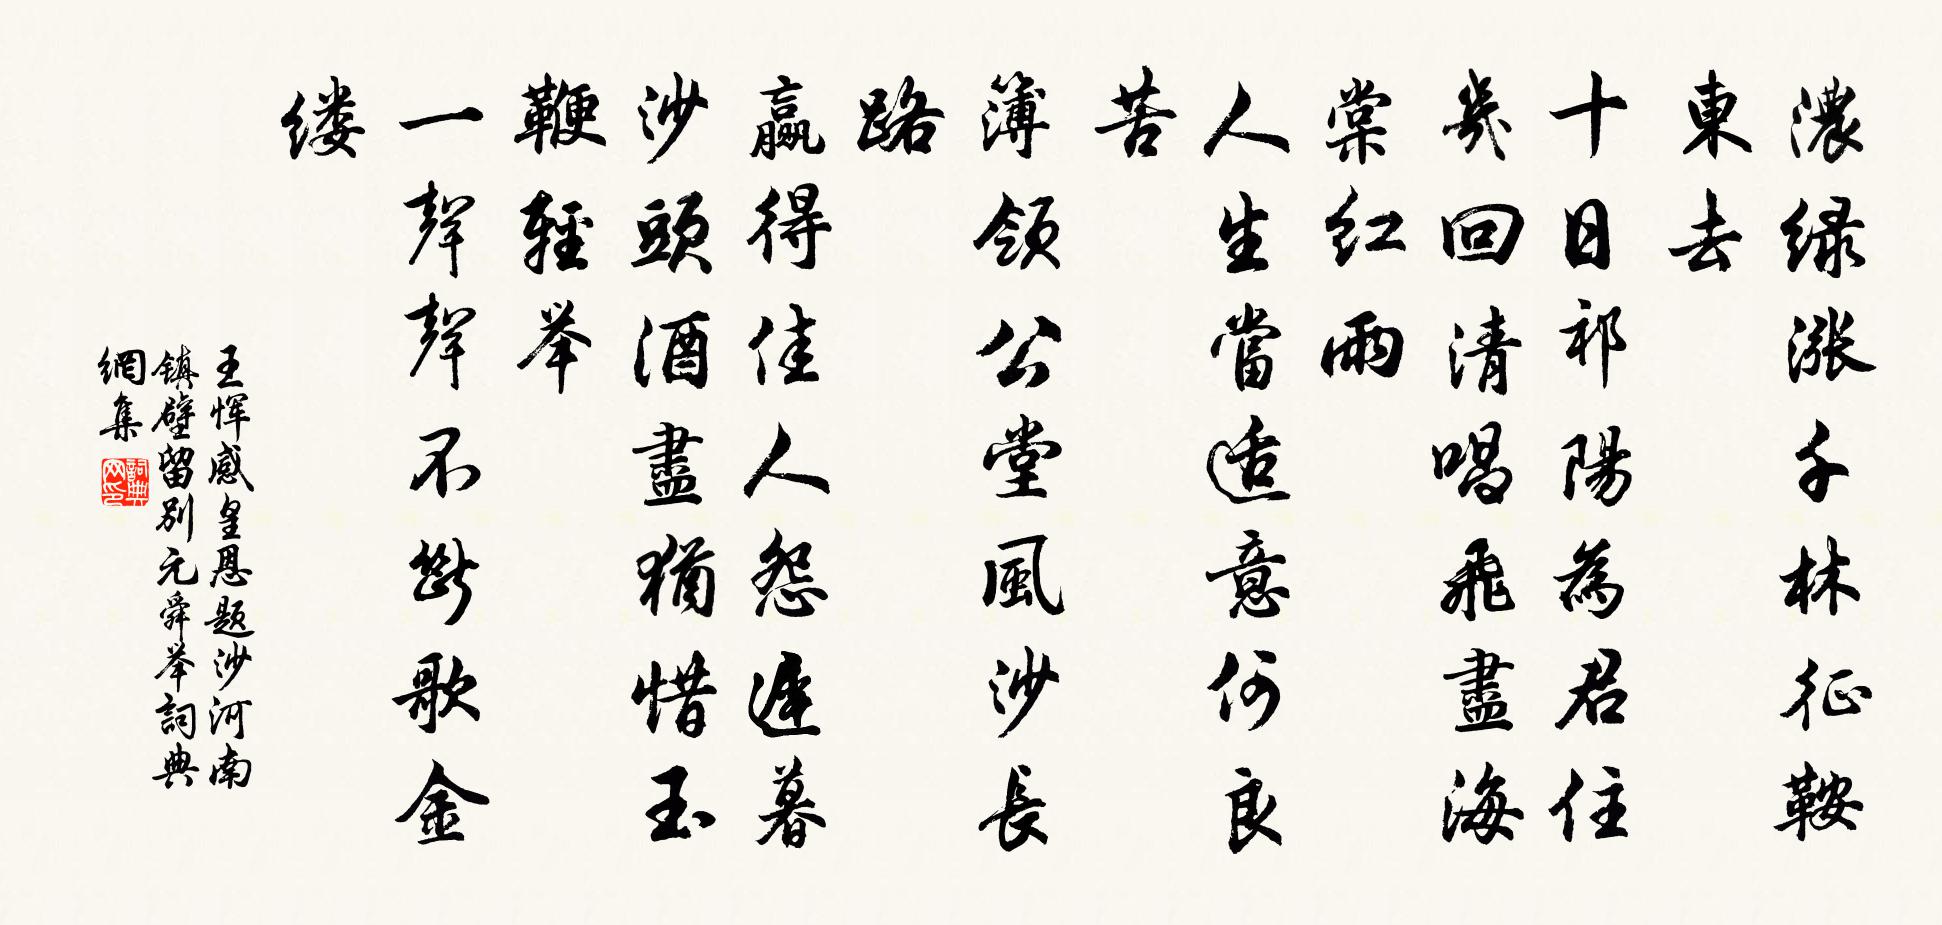 濃绿涨千林征鞍
東去
十日祁陽為君住
幾回清唱飛盡海
棠红雨
人生當适意何良
苦
簿领公堂風沙長
路
赢得佳人怨遲暮
沙頭酒盡猶惜玉
鞭輕举
一聲聲不斷歌金
缕
王恽感皇恩题沙河南
镇壁留别元舜举詞典
網集
詞典网印